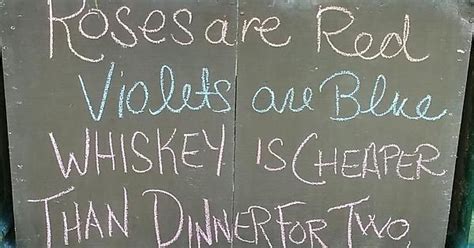 Roses are Red
Violets are Blue
WHISKEY IS CHEAPER
THAN DINNER FOR TWO.